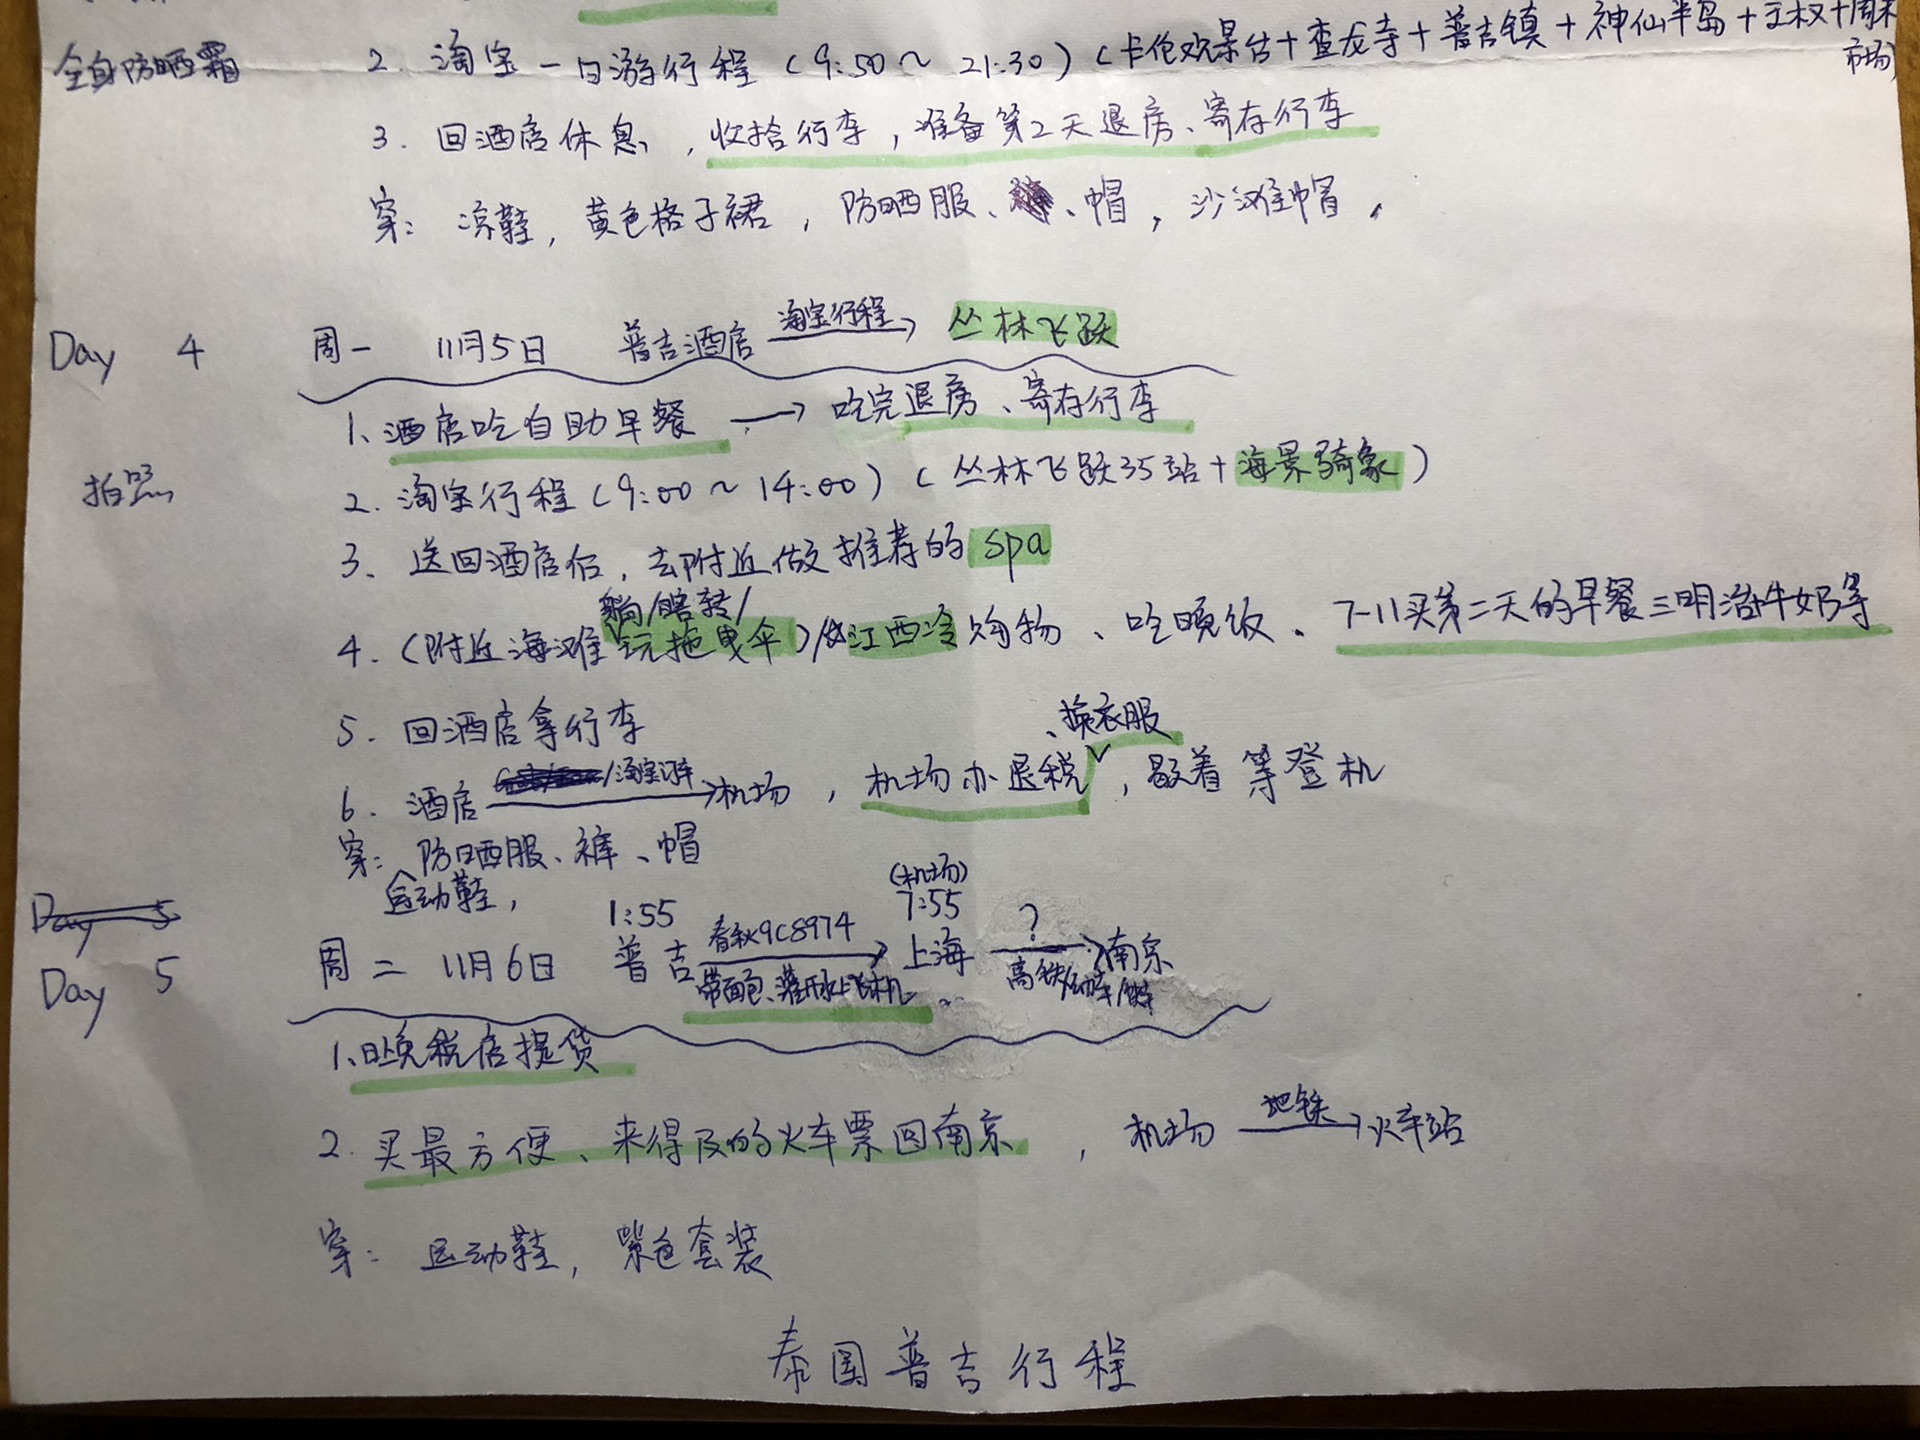 全身防晒霜
2. 淘宝一日游行程(9:50~21:30)(卡伦观景台+查龙寺+普吉镇+神仙半岛+王权+周末市场)
3. 回酒店休息,收拾行李,准备第2天退房、寄存行李
穿:凉鞋,黄色格子裙,防晒服、、帽,沙滩帽,
Day 4 周一 11月5日 普吉酒店 淘宝行程→ 丛林飞跃
1、酒店吃自助早餐 → 吃完退房、寄存行李
拍照
2. 淘宝行程(9:00~14:00)(丛林飞跃35站+海景骑象)
3、送回酒店后,去附近做推荐的spa
躺/瞎转/
4.(附近海滩玩拖曳伞)/江西冷购物、吃晚饭、7-11买第二天的早餐三明治牛奶等
5. 回酒店拿行李
、换衣服
6. 酒店 /淘宝订车→机场,机场办退税,歇着等登机
穿:防晒服、裤、帽
运动鞋,
Day 5
Day 5 周二 11月6日 1:55 普吉 春秋9C8974→ (机场) 7:55 上海 ?→南京
带面包、灌开水上飞机 高铁/动车/
1、日上免税店提货
2. 买最方便、来得及的火车票回南京,机场 地铁→火车站
穿:运动鞋,紫色套装
泰国普吉行程